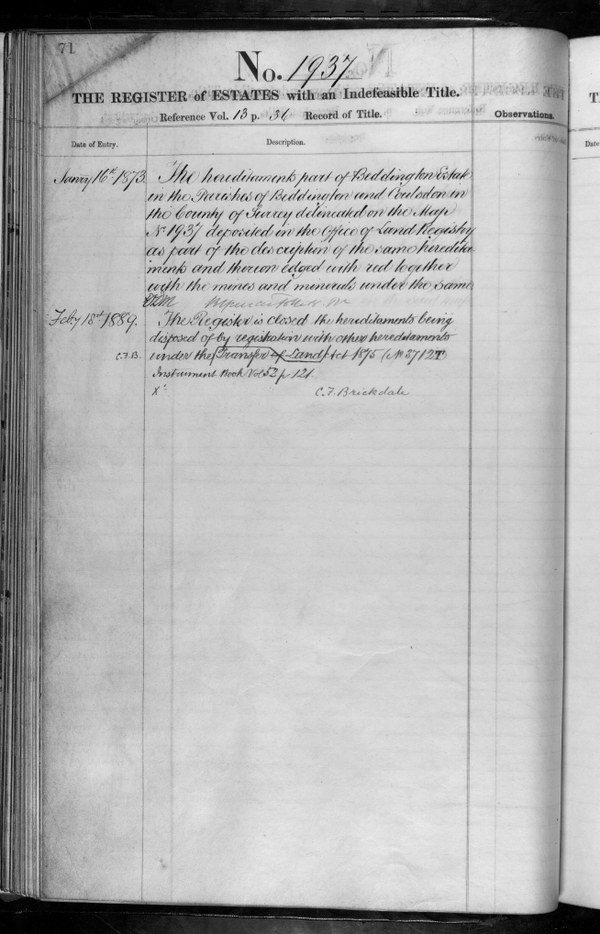 71
No. 1937
THE REGISTER of ESTATES with an Indefeasible Title.
Reference Vol. 13 p. 31 Record of Title.
Observations.
Date of Entry.
Description.
Janry 16th 1873.
The hereditaments part of Beddington Estate
in the Parishes of Beddington and Coulsdon in
the County of Surrey delineated on the Map
No 1937 deposited in the Office of Land Registry
as part of the description of the same heredita
ments and thereon edged with red together
with the mines and minerals under the same
Feby 18th 1889.
The Register is closed the hereditaments being
disposed of by registration with other hereditaments
C.F.B.
under the Transfer of Land Act 1875 (No 3712T)
Instrument Book Vol 52 p 121
C. F. Brickdale